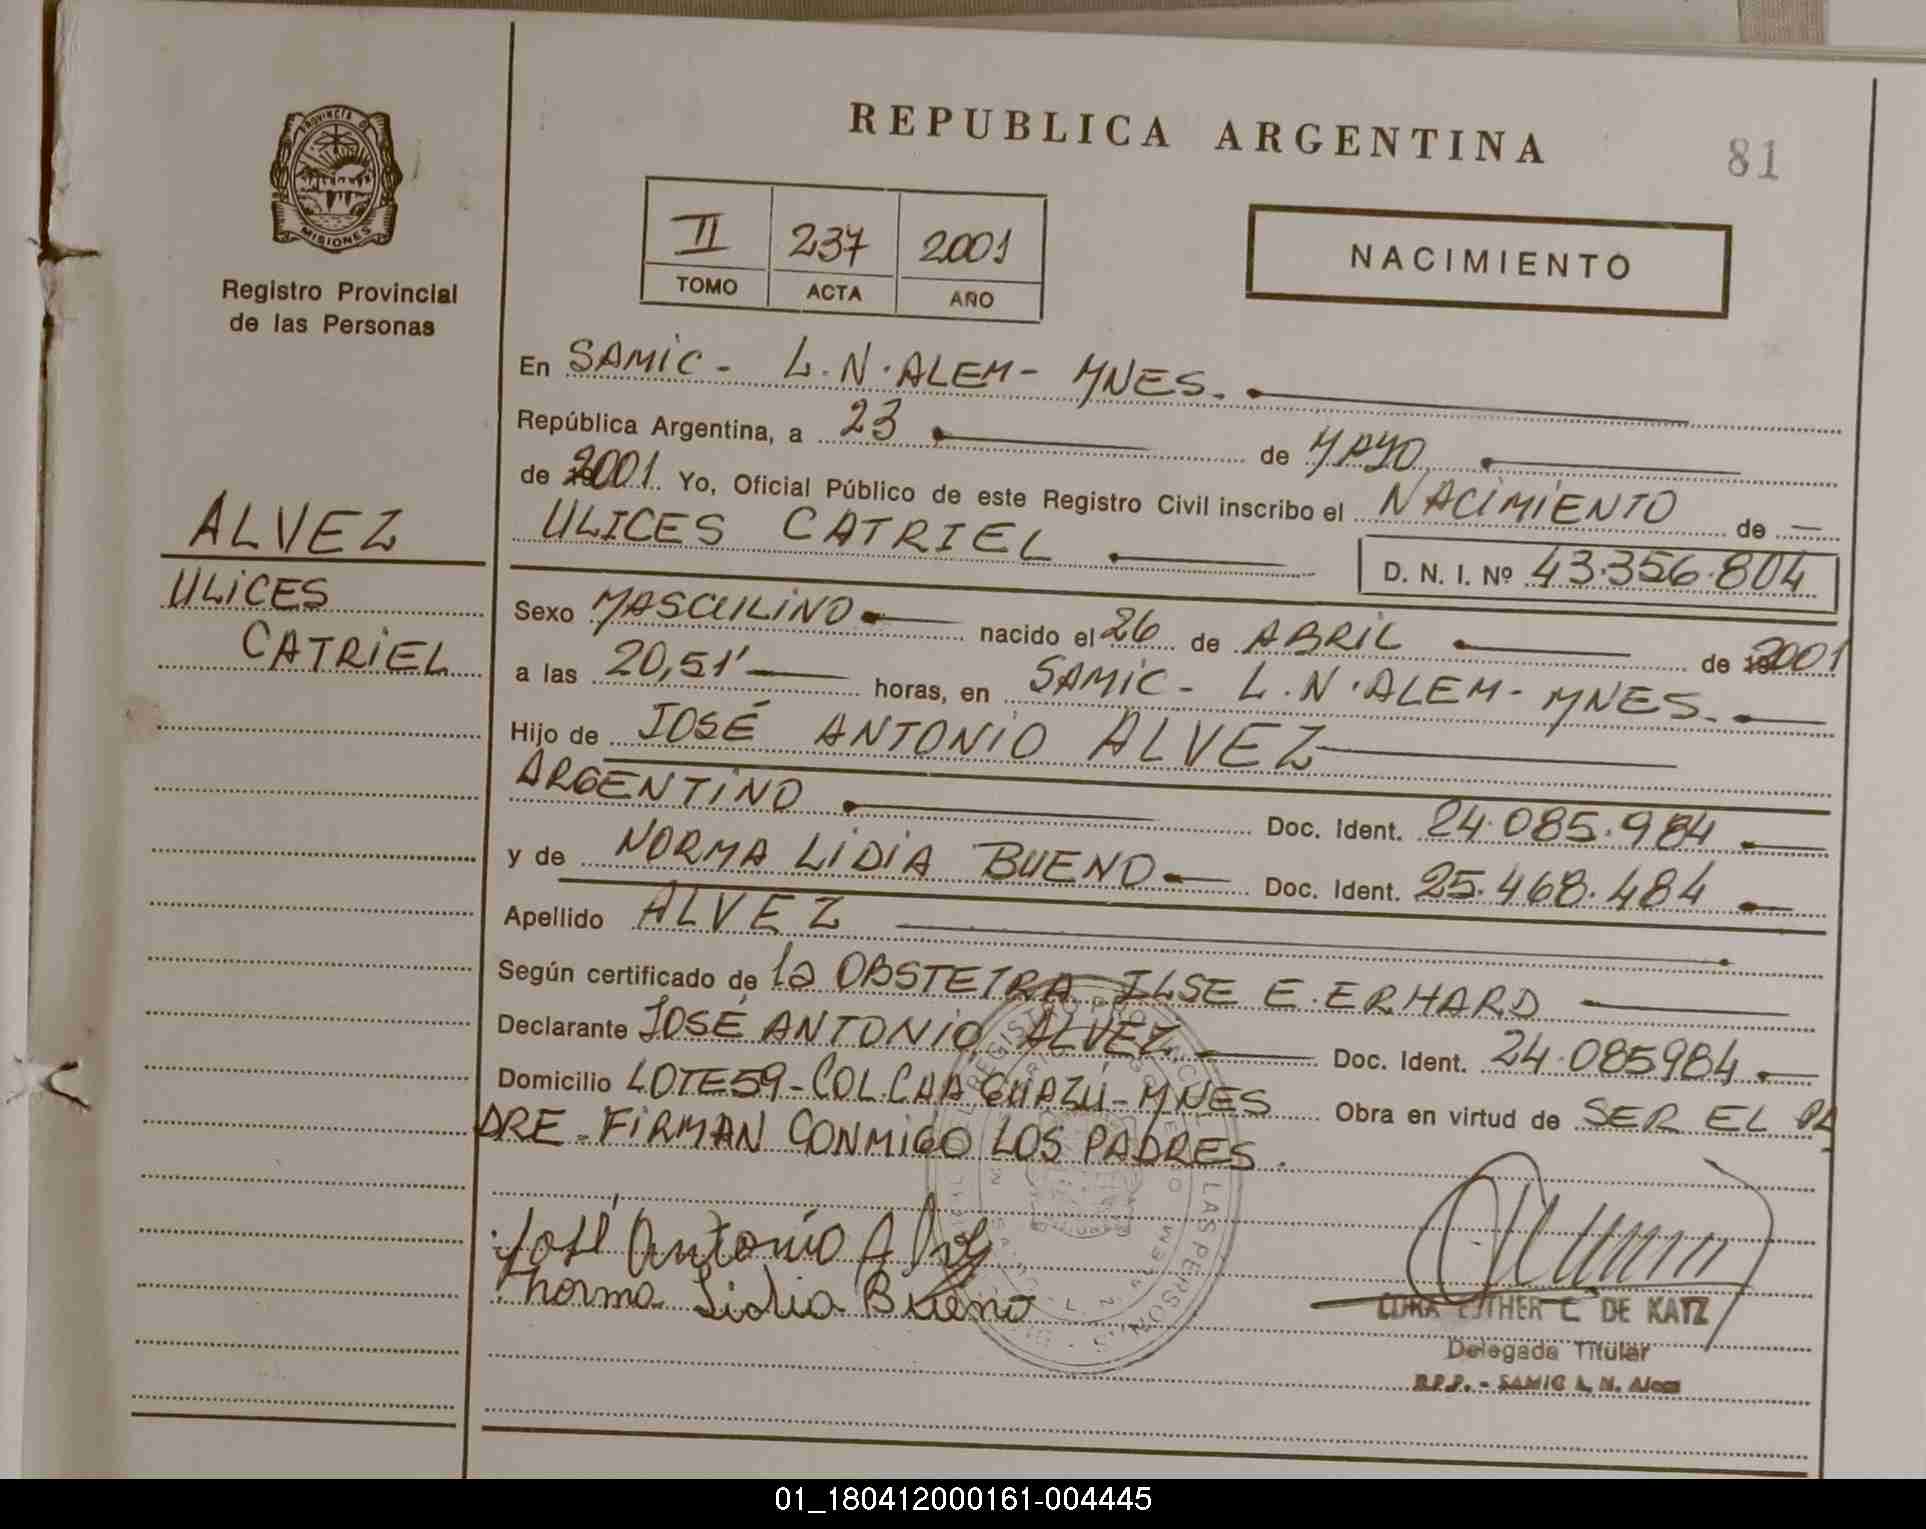 REPUBLICA ARGENTINA
81
PROVINCIA DE
MISIONES
Registro Provincial
de las Personas
II 237 2001
TOMO ACTA AÑO
NACIMIENTO
En SAMIC - L.N.ALEM - MNES.
República Argentina, a 23 de MAYO
de 2001. Yo, Oficial Público de este Registro Civil inscribo el NACIMIENTO de
ULICES CATRIEL
D. N. I. Nº 43.356.804
ALVEZ
ULICES
CATRIEL
Sexo MASCULINO nacido el 26 de ABRIL de 2001
a las 20,51' horas, en SAMIC - L.N.ALEM - MNES.
Hijo de JOSÉ ANTONIO ALVEZ
ARGENTINO Doc. Ident. 24.085.984
y de NORMA LIDIA BUENO Doc. Ident. 25.468.484
Apellido ALVEZ
Según certificado de la OBSTETRA ILSE E. ERHARD
Declarante JOSÉ ANTONIO ALVEZ Doc. Ident. 24.085984
Domicilio LOTE 59 - COL. CAA GUAZÚ - MNES Obra en virtud de SER EL PA
DRE. FIRMAN CONMIGO LOS PADRES.
José Antonio Alvez
Norma Lidia Bueno
ESTHER C. DE KATZ
Delegada Titular
R.P.P. - SAMIC L. N. Alem
01_180412000161-004445